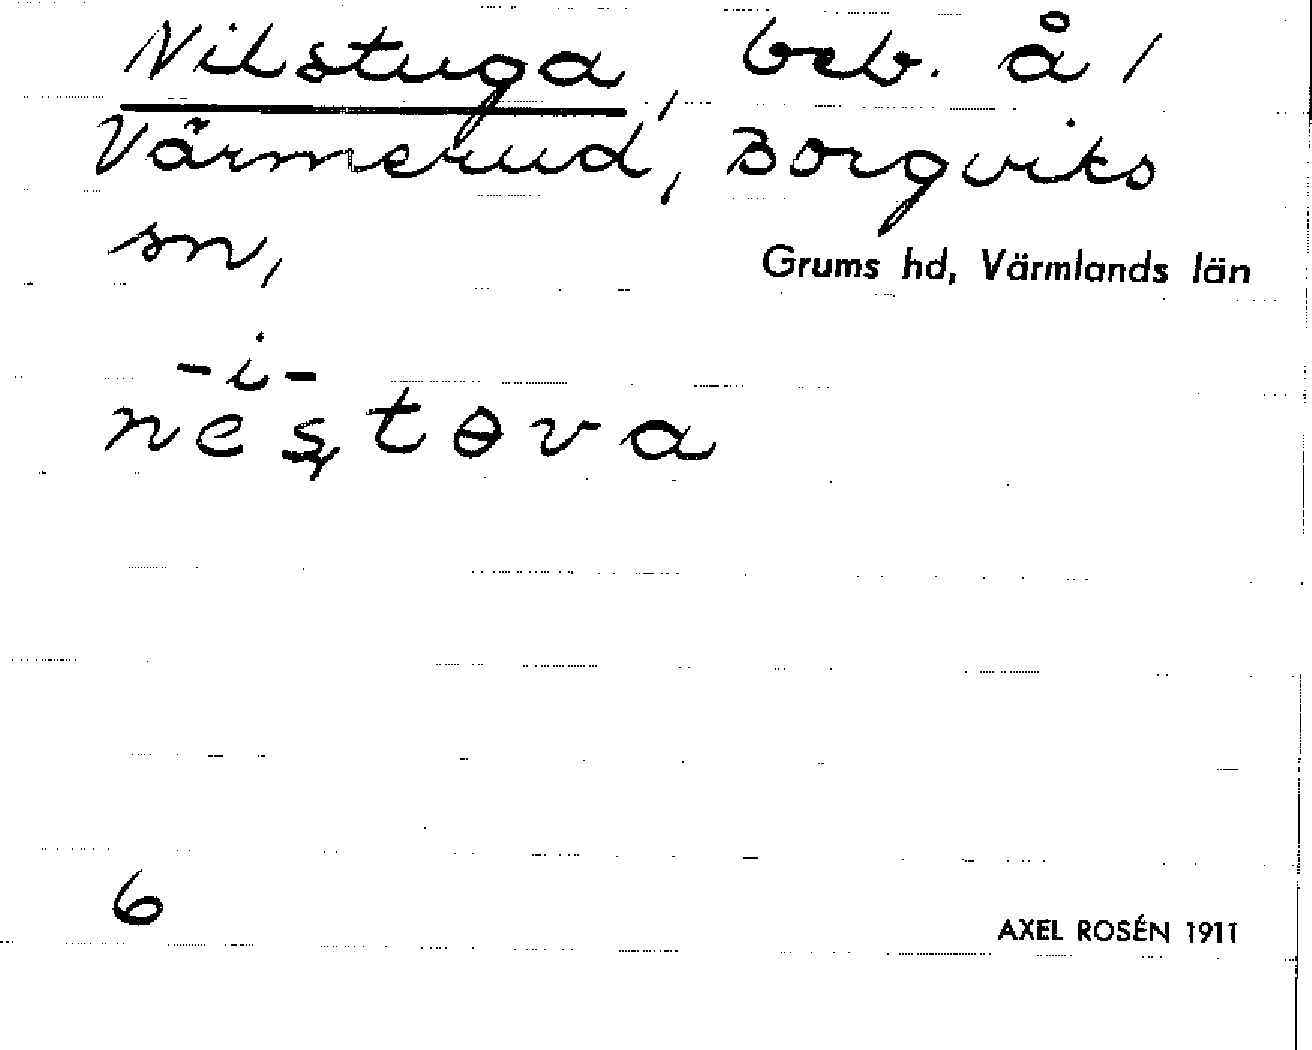 Nilstuga, beb. å /
Värmerud, Borgviks
sn,
Grums hd, Värmlands län
-i-
neştɵva
6
AXEL ROSÉN 1911